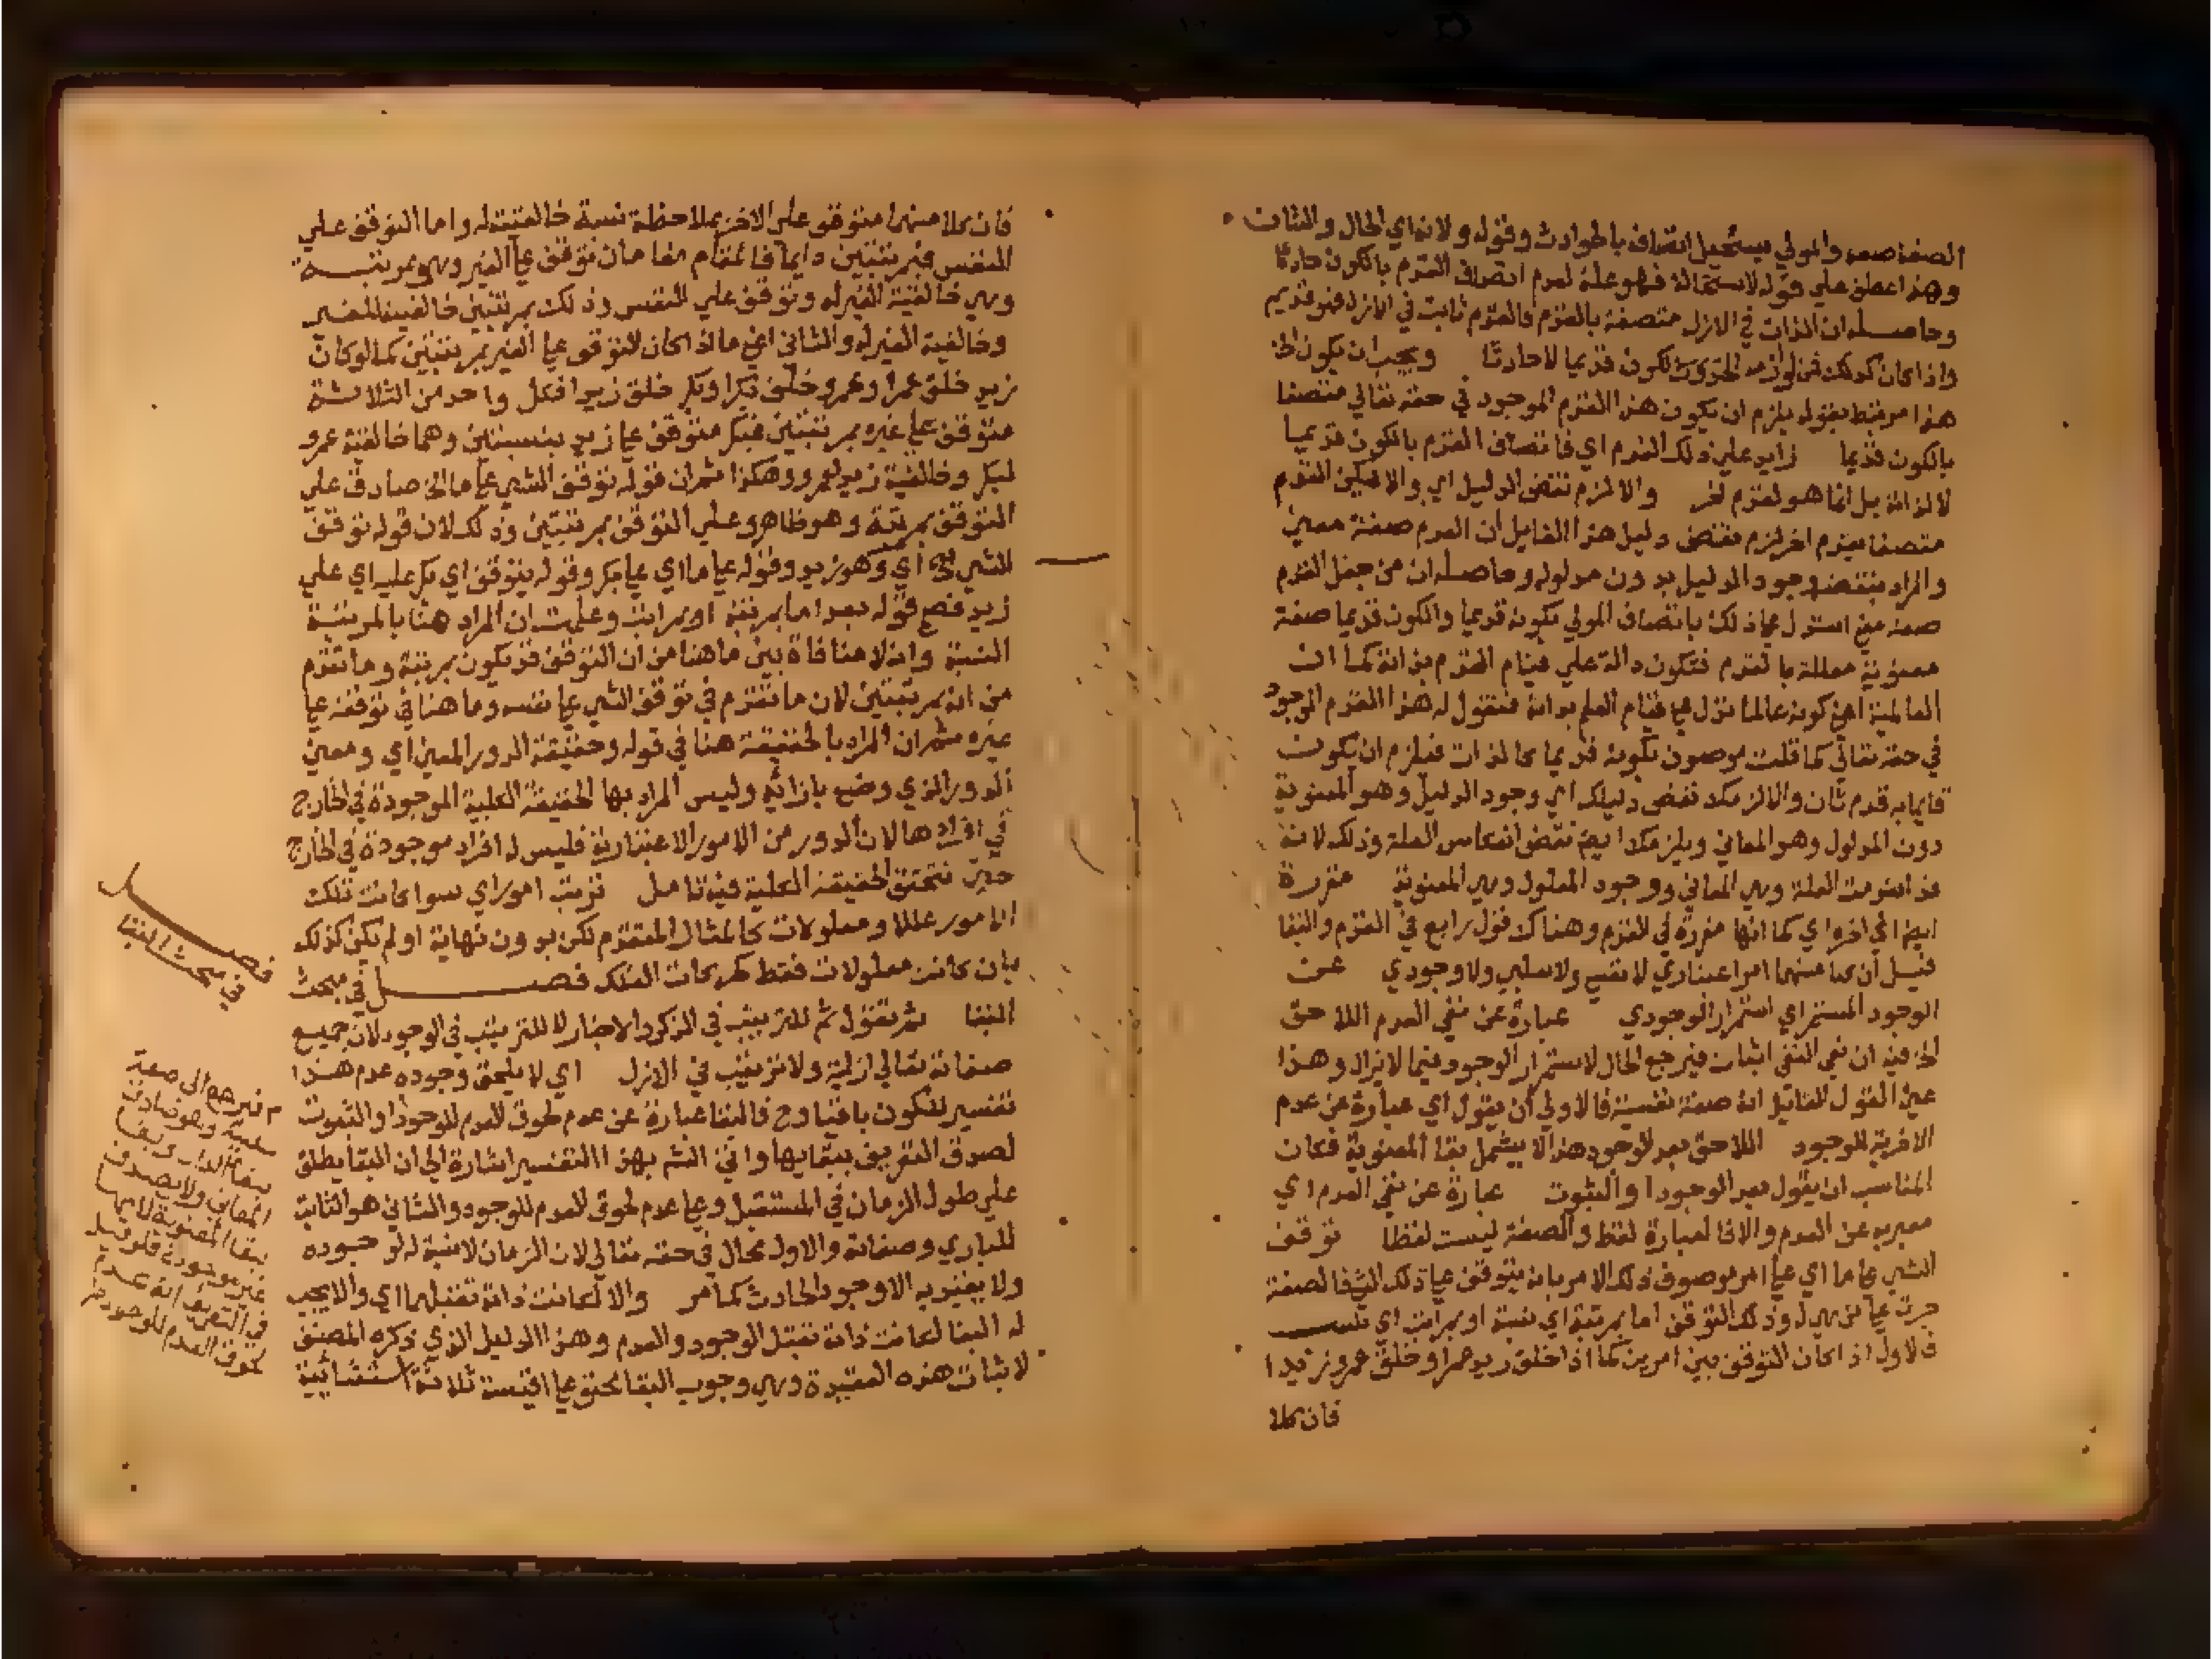 الصفة صفة والمولي يستحيل اتصافه بالحوادث وقوله ولانه اي الحال والشان
وهذا عطف علي قوله لاستحالة فهو علة لعدم اتصاف القدم بالكون حادثا
وحاصله ان الذات في الازل متصفة بالقدم فالقدم ثابت في الازل فهو قديم
واذا كان كذلك فمن لوازمه ان يكون قديما لا حادثا ويجب ان يكون الخ
هذا مرتبط بقوله يلزم ان يكون هذا القدم الموجود في حقه تعالي متصفا
بالكون قديما زايد علي ذلك القدم اي فاتصاف القدم بالكون قديما
لا لذاته بل انما هو لقدم اخر والا لزم نقض الدليل اي والا يكن القدم
متصفا بقدم اخر لزم نقض دليل هذا القايل ان القدم صفة معني
والمراد بنقضه وجود الدليل بدون مدلوله وحاصله ان من جعل القدم
صفة معني استدل علي ذلك باتصاف المولي بكونه قديما والكون قديما صفة
معنوية معللة بالقدم فتكون دالة علي قيام القدم بذاته كما ان
العالمية اعني كونه عالما تدل علي قيام العلم بذاته فنقول له هذا القدم الموجود
في حقه تعالي كما قلت موصوف بكونه قديما كالذات فيلزم ان يكون
قايما به قدم ثان والا لزمك نقض دليلك اي وجود الدليل وهو المعنوية
دون المدلول وهو المعاني ويلزمك ايضا نقض انعكاس العلة وذلك لانه
قد انعدمت العلة وهي المعاني ووجود المعلول وهي المعنوية مقررة
ايضا الي اخره اي كما انها مقررة في القدم وهناك قول رابع في القدم والبقا
قيل ان كلا منهما امر اعتباري لا نفسي ولا سلبي ولا وجودي عن
الوجود المستمر اي استمرار الوجودي عبارة عن نفي العدم اللاحق
الخ فيه ان نفي النفي اثبات فيرجع الحال لاستمرار الوجود فيما لا يزال وهذا
عين القول القايل انه صفة نفسية فالاولي ان يقول اي عبارة عن عدم
الاخرية للوجود اللاحق بعد الوجود هذا لا يشمل بقا المعنوية فكان
المناسب ان يقول بعد الوجود او الثبوت عبارة عن نفي العدم اي
معبر به عن العدم والا فالعبارة لفظ والصفة ليست لفظا توقف
الشي علي ما اي علي امر موصوف ذلك الامر بانه يتوقف علي ذلك الشي فالصفة
جرت علي من هي له وذلك التوقف اما بمرتبة اي نسبة او بمراتب اي نسب
فالاول اذا كان التوقف بين امرين كما اذا خلق زيد عمرا وخلق عمرو زيدا
فان كلا
فان كلا منهما متوقف علي الاخر بملاحظة نسبة خالقيته له واما التوقف علي
النفس فبمرتبتين دايما فالمقام مقامان توقف علي الغير وهي بمرتبة
وهي خالقية الغير له وتوقف علي النفس وذلك بمرتبتين خالقيته للغير
وخالقية الغير له والثاني اعني ما اذا كان التوقف علي الغير بمرتبتين كما لو كان
زيد خلق عمرا وعمرو خلق بكرا وبكر خلق زيدا فكل واحد من الثلاثة
متوقف علي غيره بمرتبتين فبكر متوقف علي زيد بنسبتين وهما خالقية عمرو
لبكر وخالقية زيد لعمرو وهكذا ثم ان قوله توقف الشي علي ما الخ صادق علي
التوقف بمرتبة وهو ظاهر وعلي التوقف بمرتبتين وذلك لان قوله توقف
الشي اي وهو زيد وقوله علي ما اي علي بكر وقوله يتوقف اي بكر عليه اي علي
زيد فصح قوله بعد اما بمرتبة او بمراتب وعلمت ان المراد هنا بالمرتبة
النسبة وانه لا منافاة بين ما هنا من ان التوقف قد يكون بمرتبة وما تقدم
من انه بمرتبتين لان ما تقدم في توقف الشي علي نفسه وما هنا في توقفه علي
غيره ثم ان المراد بالحقيقة هنا في قوله وحقيقة الدور المعني اي ومعني
الدور الذي وضع بازائه وليس المراد بها الحقيقة الكلية الموجودة في الخارج
في افرادها لان الدور من الامور الاعتبارية فليس له افراد موجودة في الخارج
حتي تتحقق الحقيقة الكلية فيه تامل ترتب امور اي سوا كانت تلك
الامور عللا ومعلولات كالمثال المتقدم لكن بدون نهاية او لم تكن كذلك
بان كانت معلولات فقط كحركات الفلك فصل في مبحث
البقا ثم تقول ثم للترتيب في الذكر والاخبار لا للترتيب في الوجود لان جميع
صفاته تعالي ازلية ولا ترتيب في الازل اي لا يلحق وجوده عدم هذا
تفسير للكون باقيا وح فالبقا عبارة عن عدم لحوق العدم للوجود او الثبوت
لصدق التعريف ببقايها واتي الش بهذا التفسير اشارة الي ان البقا يطلق
علي طول الزمان في المستقبل وعلي عدم لحوق العدم للوجود والثاني هو الثابت
للباري وصفاته والاول محال في حقه تعالي لان الزمان لا نسبة له لوجوده
ولا يتقيد به الا وجود الحادث كما مر والا لكانت ذاته تقبلهما اي والا يجب
له البقا لكانت ذاته تقبل الوجود والعدم وهذا الدليل الذي ذكره المصنف
لاثبات هذه العقيدة وهي وجوب البقا يحتوي علي اقيسة ثلاثة استثنائية
فصل
في مبحث البقا
م فيرجع الي صفة
سلبية وهو صادق
ببقا الذات وبقا
المعاني ولا يصدق
ببقا المعنوية لانها
غير موجودة فلو قيل
في التعريف انه عدم
لحوق العدم للوجود